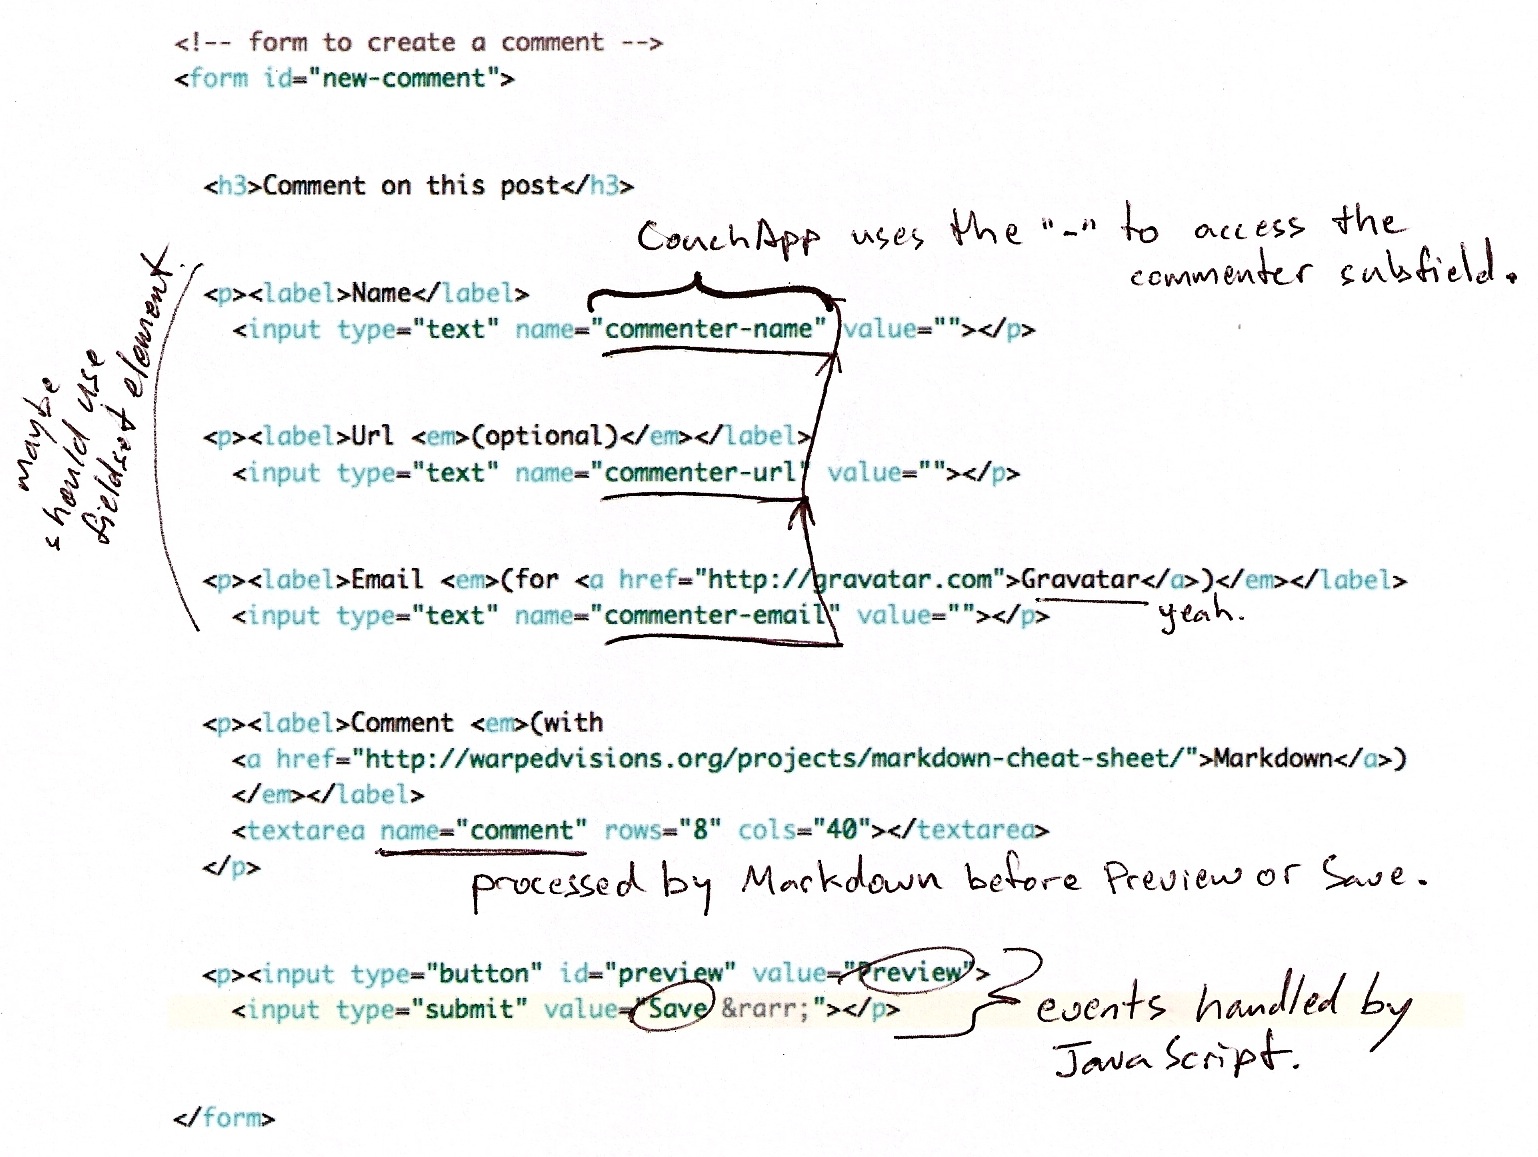 <!-- form to create a comment -->
<form id="new-comment">
<h3>Comment on this post</h3>
CouchApp uses the "-" to access the
commenter subfield.
maybe
should use
fieldset element.
<p><label>Name</label>
<input type="text" name="commenter-name" value=""></p>
<p><label>Url <em>(optional)</em></label>
<input type="text" name="commenter-url" value=""></p>
<p><label>Email <em>(for <a href="http://gravatar.com">Gravatar</a>)</em></label>
<input type="text" name="commenter-email" value=""></p>
yeah.
<p><label>Comment <em>(with
<a href="http://warpedvisions.org/projects/markdown-cheat-sheet/">Markdown</a>)
</em></label>
<textarea name="comment" rows="8" cols="40"></textarea>
</p>
processed by Markdown before Preview or Save.
<p><input type="button" id="preview" value="Preview">
<input type="submit" value="Save &rarr;"></p>
events handled by
JavaScript.
</form>